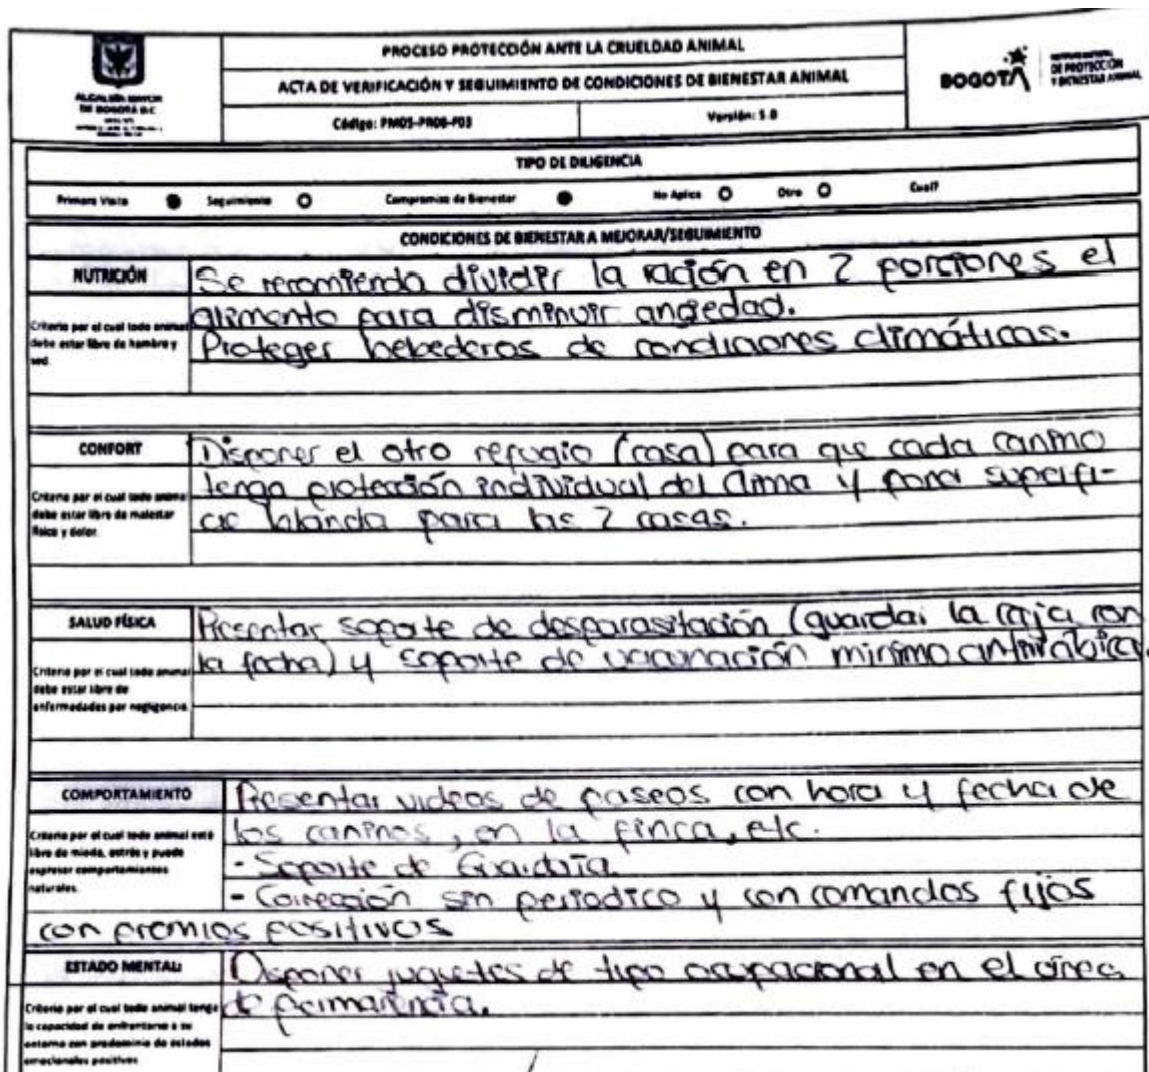 PROCESO PROTECCIÓN ANTE LA CRUELDAD ANIMAL
ACTA DE VERIFICACIÓN Y SEGUIMIENTO DE CONDICIONES DE BIENESTAR ANIMAL
Código: PM05-PR08-F03 Versión: 5.0
ALCALDÍA MAYOR
DE BOGOTÁ D.C
BOGOTÁ
DE PROTECCIÓN
Y BIENESTAR ANIMAL
TIPO DE DILIGENCIA
Primera Visita Seguimiento Compromiso de Bienestar No Aplica Otro Cual?
CONDICIONES DE BIENESTAR A MEJORAR/SEGUIMIENTO
NUTRICIÓN
Criterio por el cual todo animal
debe estar libre de hambre y
sed.
Se recomienda dividir la ración en 2 porciones el
alimento para disminuir ansiedad.
Proteger bebederos de condiciones climáticas.
CONFORT
Criterio por el cual todo animal
debe estar libre de malestar
físico y dolor.
Disponer el otro refugio (casa) para que cada canino
tenga protección individual del clima y poner superfi-
cie blanda para las 2 casas.
SALUD FÍSICA
Criterio por el cual todo animal
debe estar libre de
enfermedades por negligencia.
Presentar soporte de desparasitación (guardar la caja con
la fecha) y soporte de vacunación mínimo antirrábica.
COMPORTAMIENTO
Criterio por el cual todo animal esté
libre de miedo, estrés y puede
expresar comportamientos
naturales.
Presentar videos de paseos con hora y fecha de
los caninos, en la finca, etc.
- Soporte de Guardería
- Corrección sin periodico y con comandos fijos
con premios positivos
ESTADO MENTAL:
Criterio por el cual todo animal tenga
la capacidad de enfrentarse a su
entorno con predominio de estados
emocionales positivos
Disponer juguetes de tipo ocupacional en el área
de permanencia.